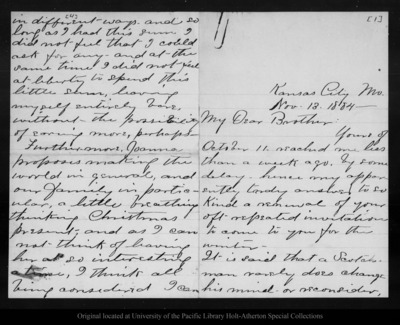 [1]
Kansas City Mo.
Nov. 13. 1884
My Dear Brother:
Yours of
October 11. reached me less
than a week ago. By some
delay. hence my appar-
ently tardy answer to so
kind a renewal of your
oft repeated invitation
to come to you for the
winter.
It is said that a Scotch-
man rarely does change
his mind or reconsider,
[4]
in different ways. and so
long as I had this sum I
did not feel that I could
ask for any. and at the
same time I did not feel
at liberty to spend this
little sum, leaving
myself entirely bare,
without the possibility
of earning more, perhaps.
Furthermore, Joanna
proposes making the
world in general, and
our family in particu-
lar, a little breathing
thinking Christmas
present, and as I can
not think of leaving
her at so interesting
a time, I think all
being considered I can
Original located at University of the Pacific Library Holt-Atherton Special Collections